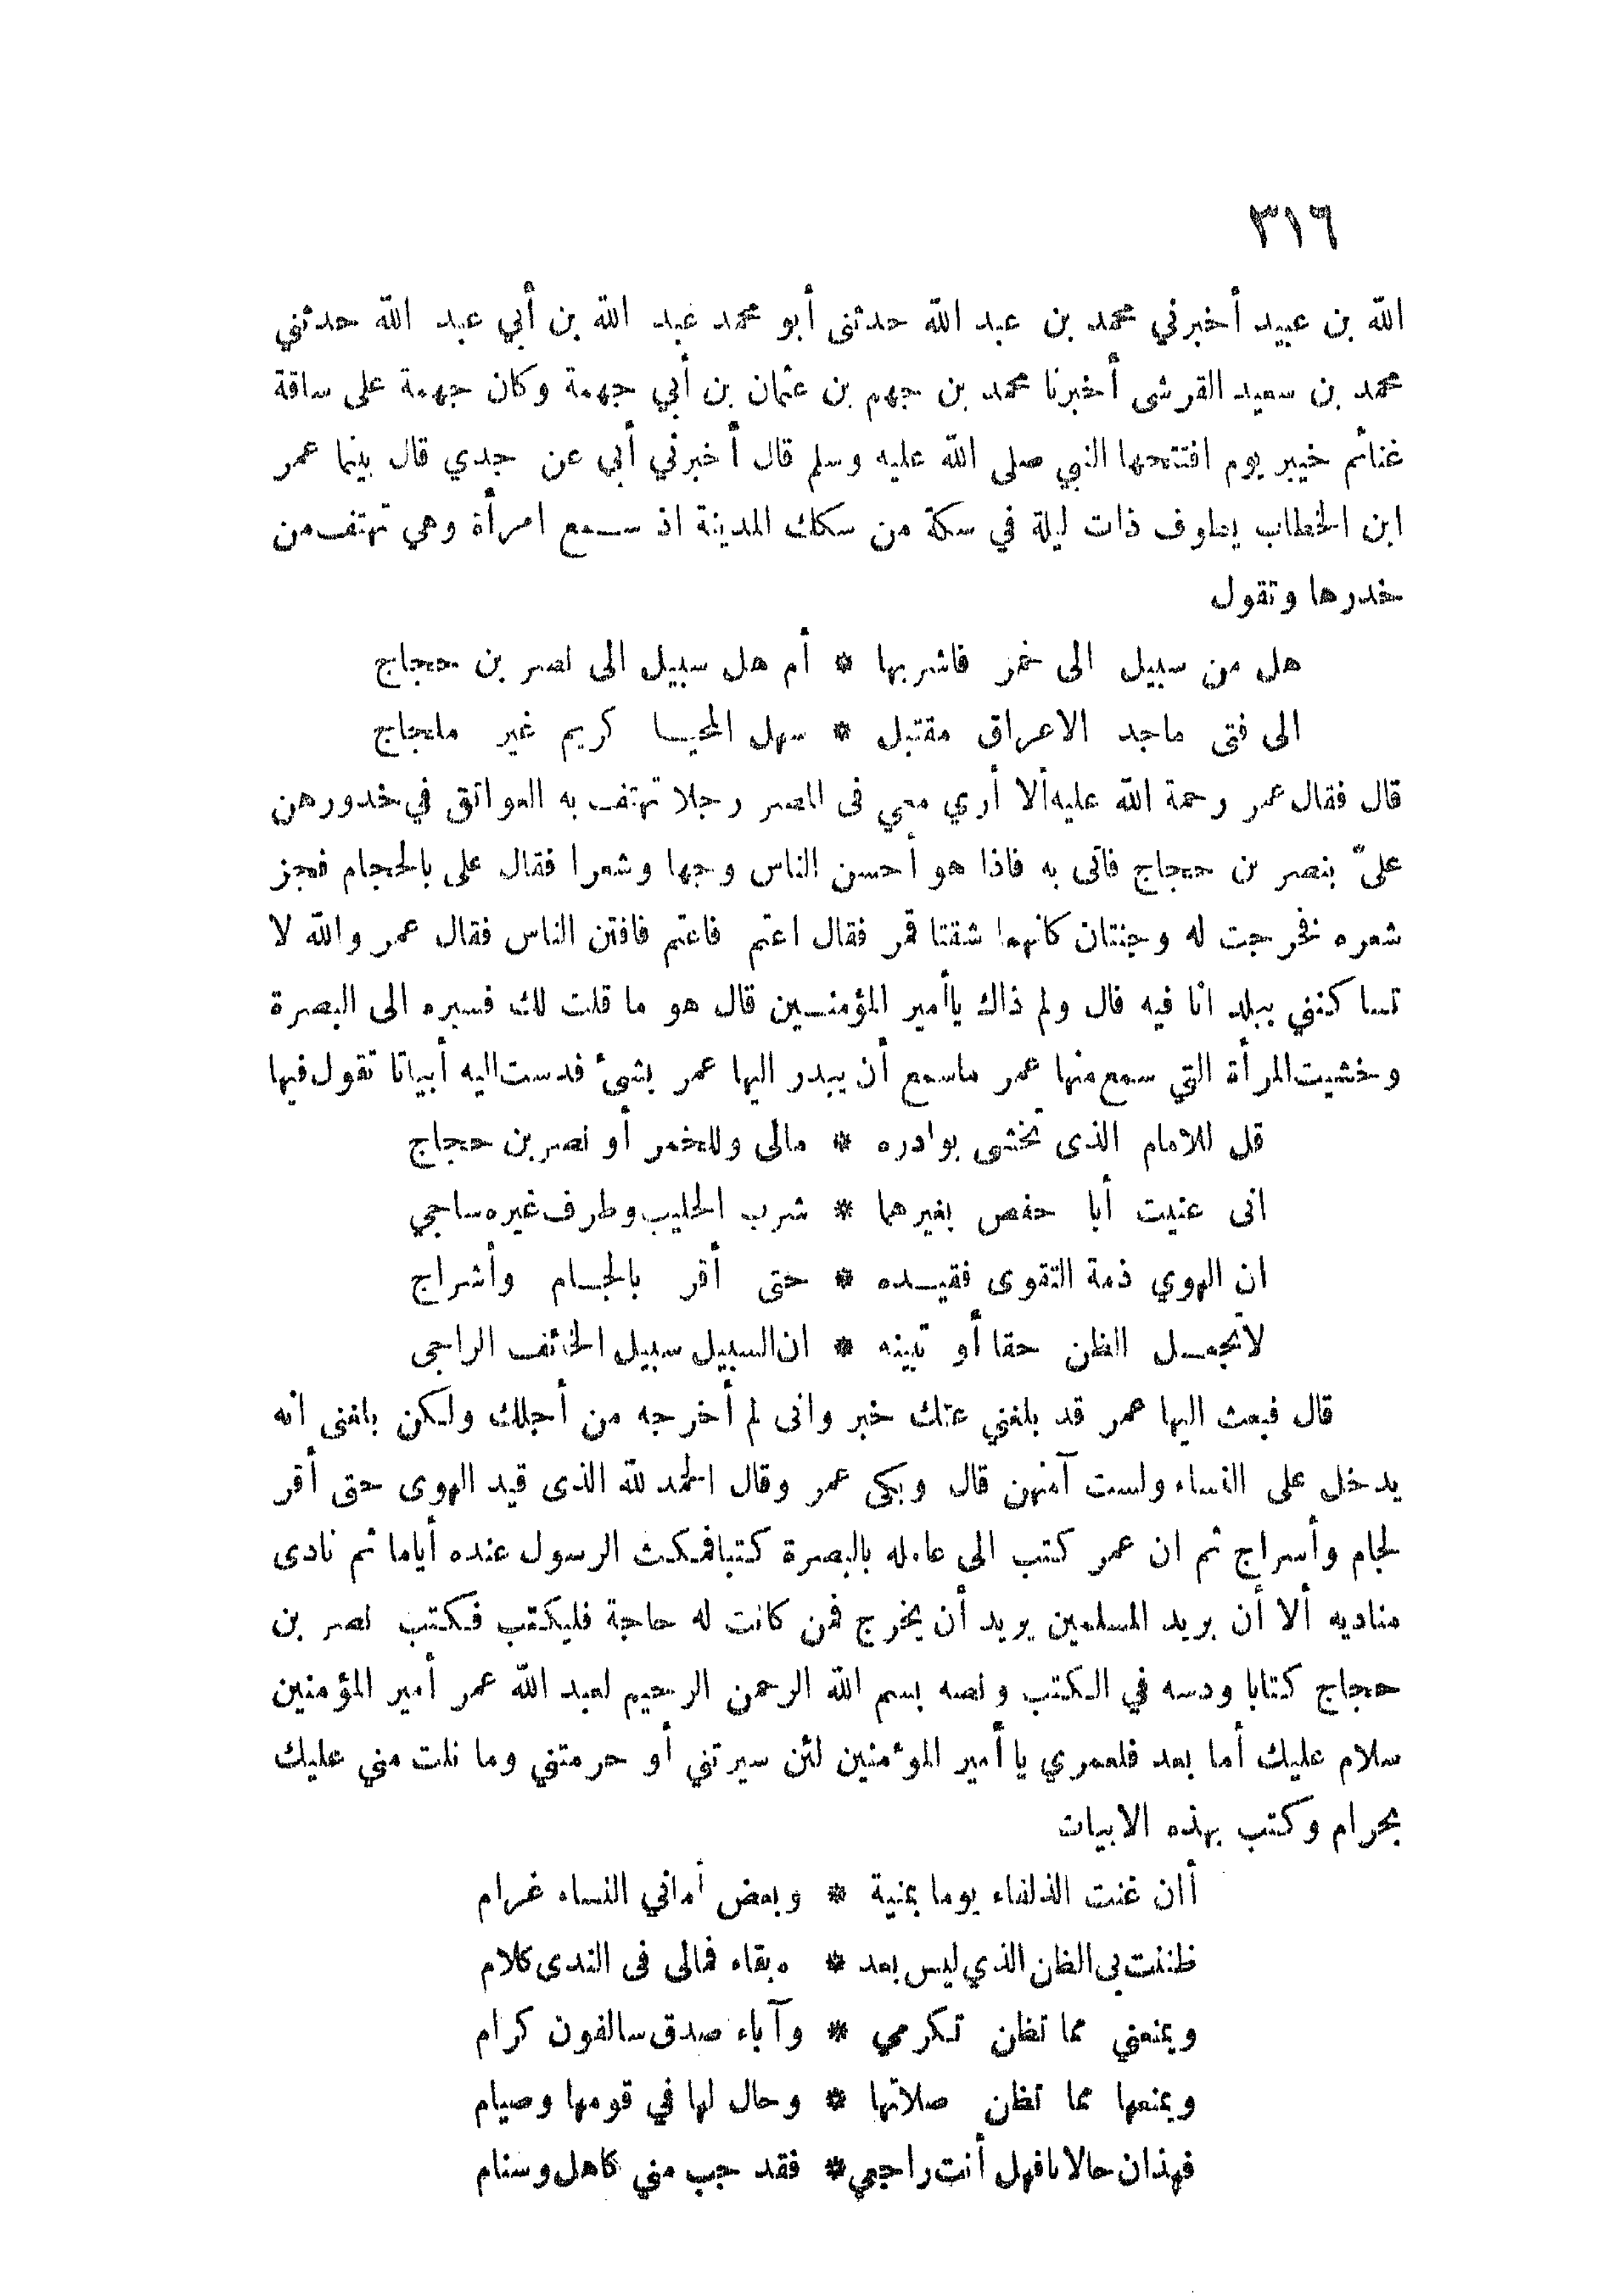 ٣١٦
الله بن عبيد أخبرني محمد بن عبد الله حدثنى أبو محمد عبد الله بن أبي عبد الله حدثني
محمد بن سعيد القرشى أخبرنا محمد بن جهم بن عثمان بن أبي جهمة وكان جهمة على ساقة
غنائم خيبر يوم افتتحها النبي صلى الله عليه وسلم قال أخبرني أبي عن جدي قال بينما عمر
ابن الخطاب يطوف ذات ليلة في سكة من سكك المدينة اذ سمع امرأة وهي تهتف من
خدرها وتقول
هل من سبيل الى خمر فاشربها * أم هل سبيل الى نصر بن حجاج
الى فتى ماجد الاعراق مقتبل * سهل المحيا كريم غير ملجاج
قال فقال عمر رحمة الله عليه ألا أري معي فى المصر رجلا تهتف به العواتق في خدورهن
علىّ بنصر بن حجاج فاتى به فاذا هو أحسن الناس وجها وشعرا فقال على بالحجام فجز
شعره فخرجت له وجنتان كانهما شقتا قمر فقال اعتم فاعتم فافتن الناس فقال عمر والله لا
تساكنني ببلد انا فيه قال ولم ذاك ياأمير المؤمنين قال هو ما قلت لك فسيره الى البصرة
وخشيت المرأة التي سمع منها عمر ماسمع أن يبدر اليها عمر بشئ فدست اليه أبياتا تقول فيها
قل للامام الذى تخشى بوادره * مالى وللخمر أو نصر بن حجاج
انى عنيت أبا حفص بغيرهما * شرب الحليب وطرف غيره ساجي
ان الهوي ذمة التقوى فقيده * حتى أقر بالجام وأشراج
لاتجعل الظن حقا أو تبينه * ان السبيل سبيل الخائف الراجى
قال فبعث اليها عمر قد بلغني عنك خبر وانى لم أخرجه من أجلك ولكن بلغنى انه
يدخل على النساء ولست آمنهن قال وبكى عمر وقال الحمد لله الذى قيد الهوى حتى أقر
لجام وأسراج ثم ان عمر كتب الى عامله بالبصرة كتبا فمكث الرسول عنده أياما ثم نادى
مناديه ألا أن بريد المسلمين يريد أن يخرج فمن كانت له حاجة فليكتب فكتب نصر بن
حجاج كتابا ودسه في الكتب ونصه بسم الله الرحمن الرحيم لعبد الله عمر أمير المؤمنين
سلام عليك أما بعد فلعمري يا أمير المؤمنين لئن سيرتني أو حرمتني وما نلت مني عليك
بحرام وكتب بهذه الابيات
أان غنت الذلفاء يوما بمنية * وبعض أماني النساء غرام
ظننت بى الظن الذي ليس بعد * ه بقاء فمالى فى الندى كلام
ويمنعني مما تظن تكرمي * وآباء صدق سالفون كرام
ويمنعها مما تظن صلاتها * وحال لها في قومها وصيام
فهذان حالانا فهل أنت راجعي * فقد جب مني كاهل وسنام